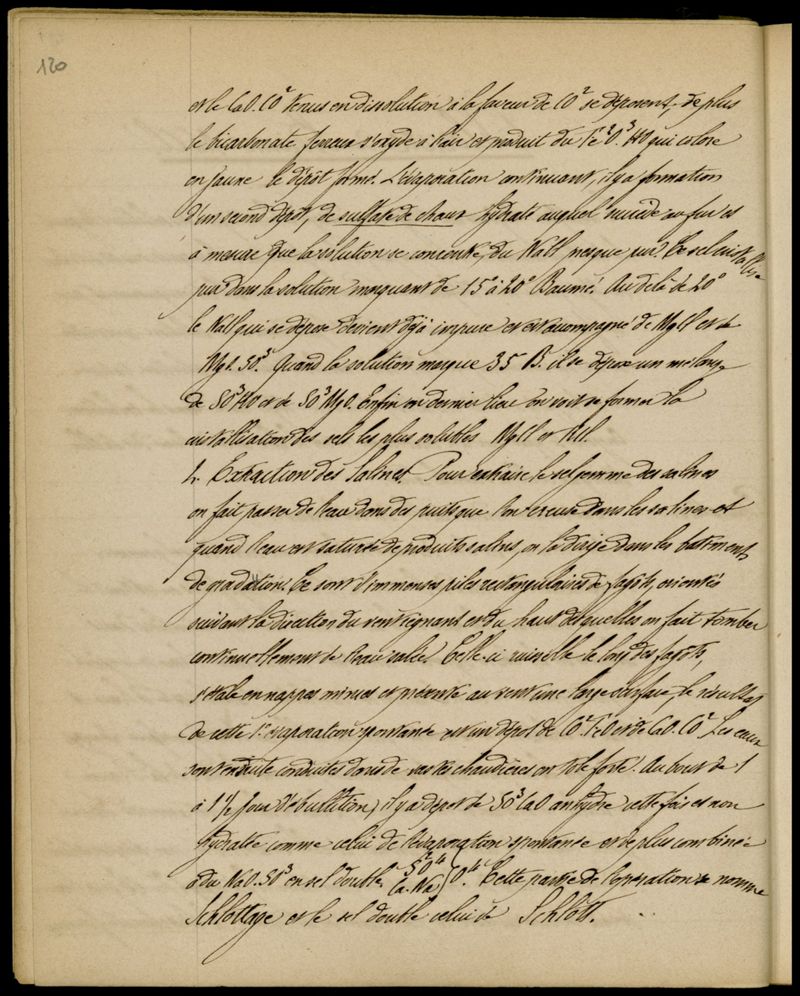 120
et le CaO.CO² tenus en dissolution à la faveur de CO² se déposent, de plus
le bicarbonate ferreux s'oxyde à l'air et produit du Fe²O³HO qui colore
en jaune le dépôt formé. L'évaporation continuant, il y a formation
d'un second dépôt, de sulfate de chaux hydraté auquel succède au fur et
à mesure que la solution se concentre, du NaCl presque pur. Ce sel cristallise
pur dans la solution marquant de 15° à 20° Baumé. Au delà de 20°
le NaCl qui se dépose devient déjà impure et est accompagné de MgCl et de
MgO.SO³. Quand la solution marque 35 B. il se dépose un mélange
de SO³HO et de SO³MgO. Enfin en dernier lieu on voit se former la
cristallisation des sels les plus solubles MgCl et KCl.
2. Extraction des Salines. Pour extraire le sel gemme des salines
on fait passer de l'eau dans des puits que l'on creuse dans les salines et
quand l'eau est saturée de produits salins, on la dirige dans les bâtiments
de gradation. Ce sont d'immenses piles rectangulaires de fagots, orientées
suivant la direction du vent régnant et du haut desquelles on fait tomber
continuellement de l'eau salée. Celle-ci ruisselle le long des fagots,
s'étale en nappes minces et présente au vent une large surface, le résultat
de cette 1e évaporation spontanée est un dépôt de CO²FeO et de CaO.CO² Les eaux
sont ensuite conduites dans de vastes chaudières en tôle forte. Au bout de 1
à 1 1/2 jour d'ébullition, il y a dépôt de SO³CaO anhydre cette fois et non
hydraté comme celui de l'évaporation spontanée et de plus combiné
à du NaO.SO³ en sel double S²O⁴ Ca.Na } O⁴. Cette partie de l'opération se nomme
Schlottage et le sel double celui de Schlott.